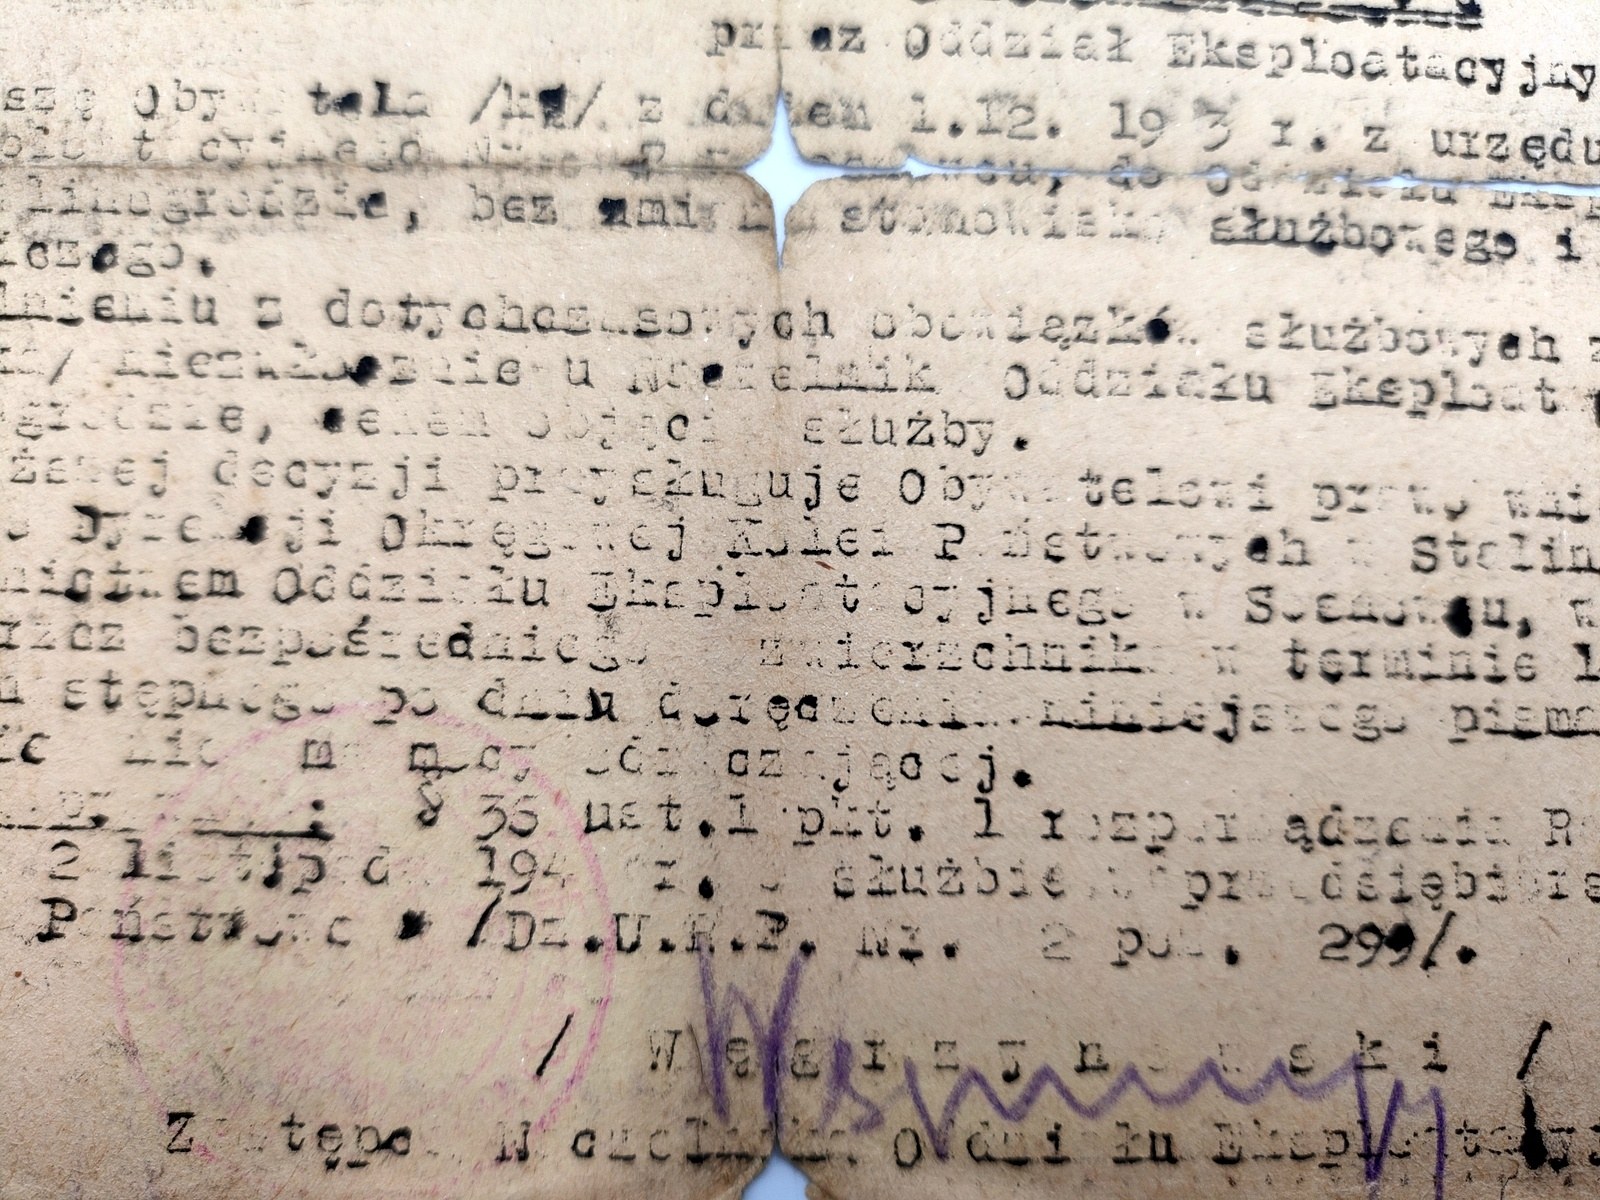 przez Oddział Eksploatacyjny
szę Obywatela /kę/ z dniem 1.12. 1953 r. z urzędu
cyjnego do Oddziału
linogrodzie, bez zmiany stanowiska służbowego i
iczego.
lnieniu z dotychczasowych obowiązków służbowych
niezwłocznie u Naczelnika Oddziału Eksploat
grodzie, celem objęcia służby.
żanej decyzji przysługuje Obywatelowi prawo wni
Dyrekcji Okręgowej Kolei Państwowych w Stalin
nictwem Oddziału Eksploatacyjnego w Sosnowcu,
bezpośredniego zwierzchnika w terminie 1
stępnego po dniu doręczenia niniejszego pisma
nie ma mocy odraczającej.
§ 36 ust.1 pkt. 1 rozporządzenia R
2 listopada 194 r. o służbie przedsiębiors
Państwowe /Dz.U.R.P. Nr. 2 poz. 299/.
/ W ę g r z y n o w s k i /
Zastępca Naczelnika Oddziału Eksploatacyj